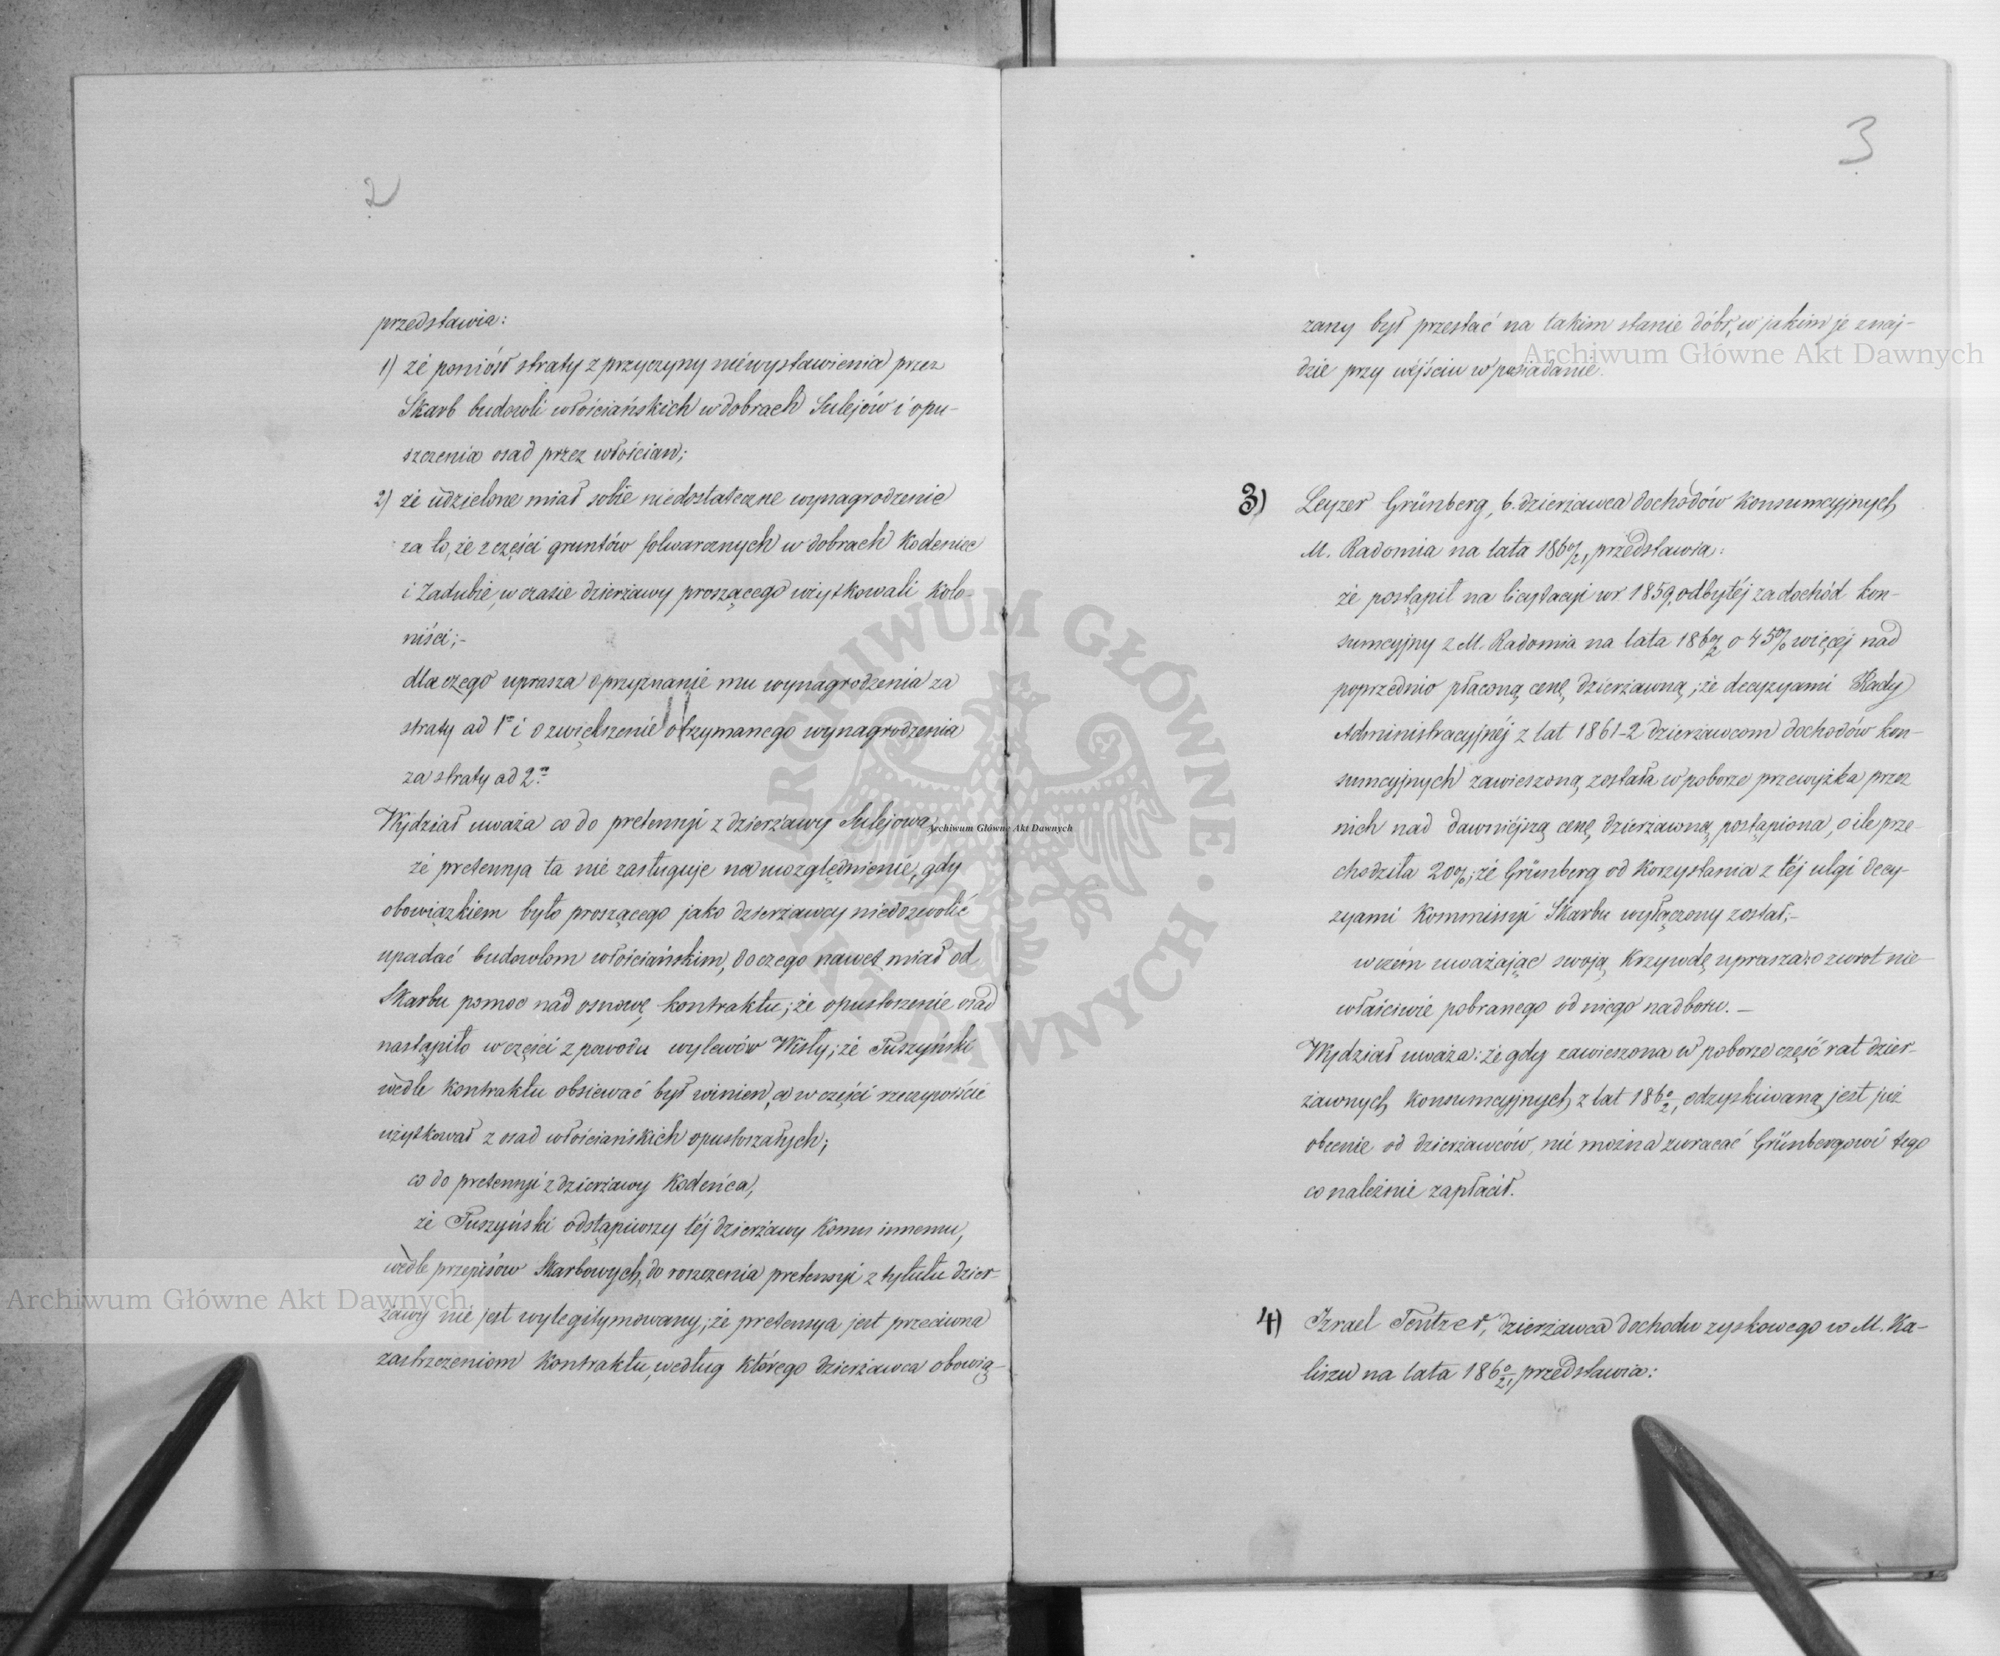 2
przedstawia:
1) że poniósł straty z przyczyny niewystawienia przez
Skarb budowli włościańskich w dobrach Sulejów i opu-
szczenia osad przez włościan;
2) że udzielone miał sobie niedostateczne wynagrodzenie
za to, że z części gruntów folwarcznych w dobrach Kodeniec
i Zadubie, w czasie dzierżawy proszącego użytkowali kolo-
niści;-
dla czego uprasza o przyznanie mu wynagrodzenia za
straty ad 1º i o zwiększenie otrzymanego wynagrodzenia
za straty ad 2º
Wydział uważa co do pretensyi z dzierżawy Sulejowa,
że pretensya ta nie zasługuje na uwzględnienie, gdy
obowiązkiem było proszącego jako dzierżawcy niedozwolić
upadać budowlom włościańskim, do czego nawet miał od
Skarbu pomoc nad osnowę kontraktu; że opustoszenie osad
nastąpiło w części z powodu wylewów Wisły; że Tuszyński
wedle kontraktu obsiewać był winien, a w części rzeczywiście
użytkował z osad włościańskich opustoszałych;
co do pretensyi z dzierżawy Kodeńca,
że Tuszyński odstąpiwszy téj dzierżawy komu innemu,
wedle przepisów Skarbowych, do roszczenia pretensyi z tytułu dzier-
żawy nie jest wylegitymowany; że pretensya jest przeciwna
zastrzeżeniom kontraktu, według którego dzierżawca obowią-
3
zany był przestać na takim stanie dóbr, w jakim je znaj-
dzie przy wejściu w posiadanie.
3) Leyzer Grünberg, b. dzierżawca dochodów konsumcyjnych
M. Radomia na lata 1860/2, przedstawia:
że postąpił na licytacyi w r. 1859 odbytéj za dochód kon-
sumcyjny z M. Radomia na lata 1860/2 o 45% więcéj nad
poprzednio płaconą cenę dzierżawną; że decyzyami Rady
Administracyjnéj z lat 1861-2 dzierżawcom dochodów kon-
sumcyjnych zawieszoną została w poborze przewyżka przez
nich nad dawniejszą cenę dzierżawną postąpiona, o ile prze-
chodziła 20%; że Grünberg od korzystania z téj ulgi decy-
zyami Kommissyi Skarbu wyłączony został;-
w czém uważając swoją krzywdę uprasza o zwrot nie-
właściwie pobranego od niego nadboru. -
Wydział uważa: że gdy zawieszona w poborze część rat dzier-
żawnych konsumcyjnych z lat 1860/2, odzyskiwaną jest już
obecnie od dzierżawców, nie można zwracać Grünbergowi tego
co należnie zapłacił.
4) Izrael Tentzer, dzierżawca dochodu zyskowego w M. Ka-
liszu na lata 1860/2, przedstawia:
Archiwum Główne Akt Dawnych
Archiwum Główne Akt Dawnych
Archiwum Główne Akt Dawnych
ARCHIWUM GŁÓWNE AKT DAWNYCH